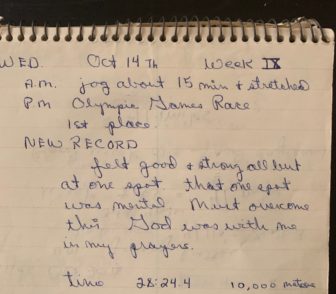 WED. Oct 14TH Week IX
A.M. jog about 15 min & stretched
P.M. Olympic Games Race
1st place
NEW RECORD
felt good & strong all but
at one spot. that one spot
was mental. Must overcome
this God was with me
in my prayers.
time 28:24.4 10,000 meters